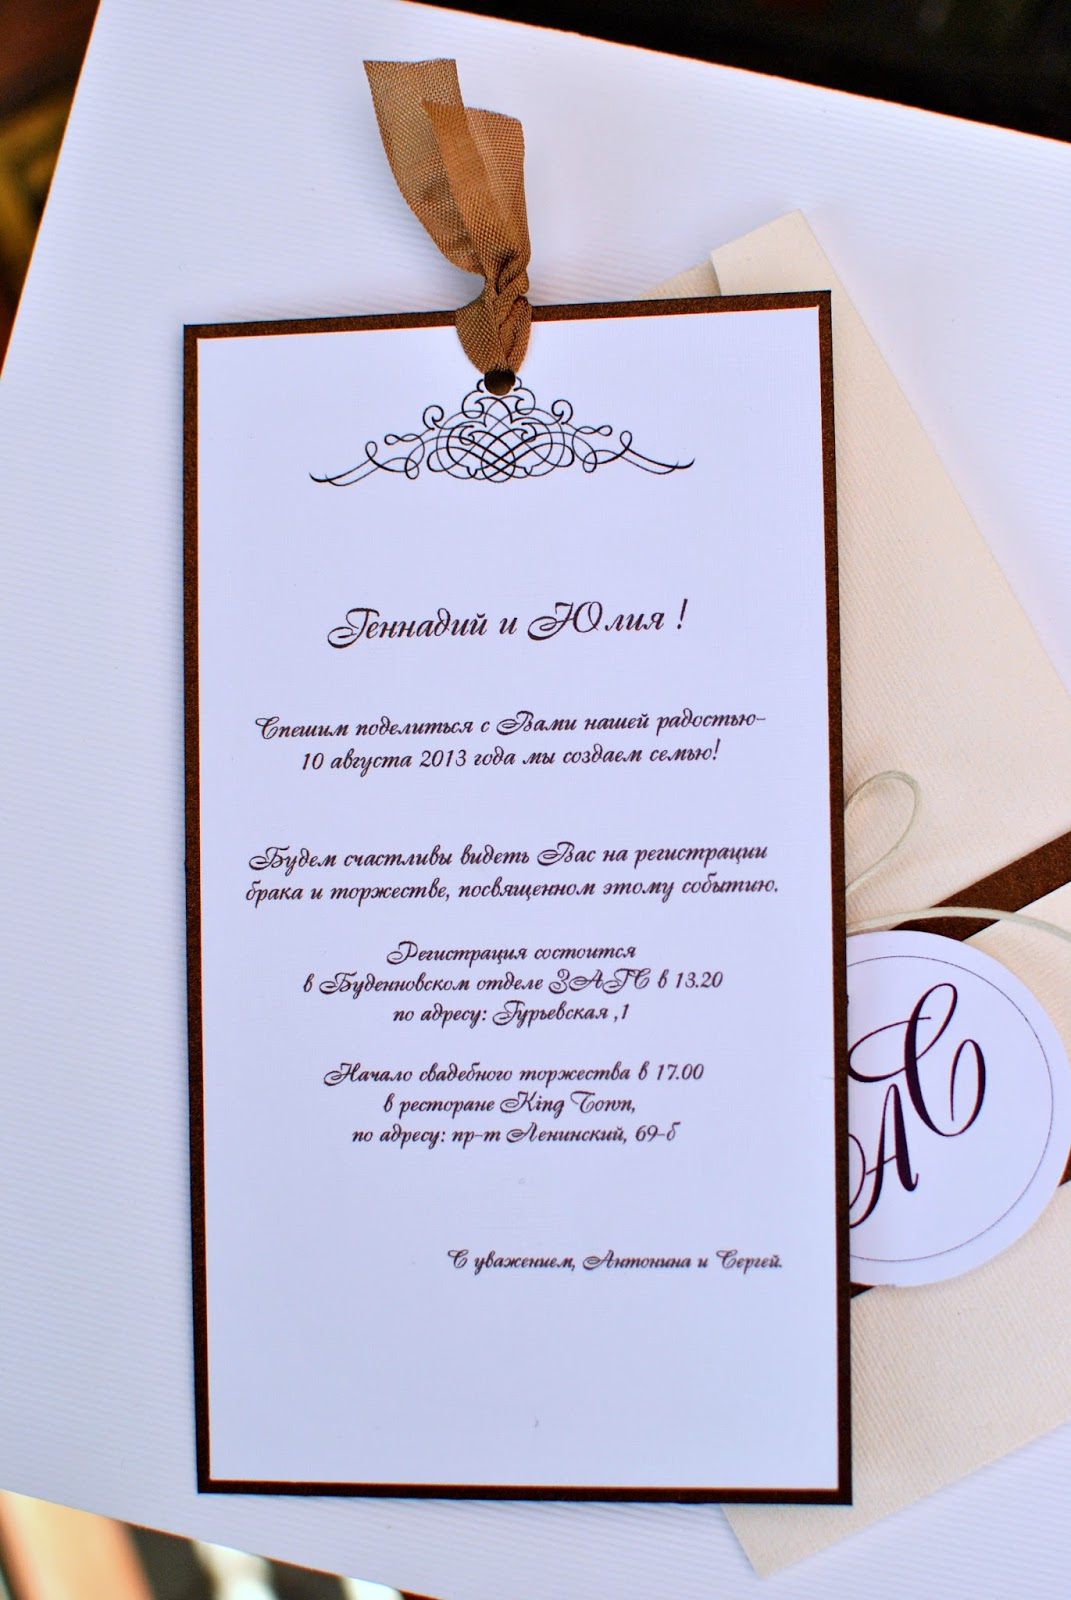 Геннадий и Юлия !
Спешим поделиться с Вами нашей радостью-
10 августа 2013 года мы создаем семью!
Будем счастливы видеть Вас на регистрации
брака и торжестве, посвященном этому событию.
Регистрация состоится
в Буденновском отделе ЗАГС в 13.20
по адресу: Гурьевская ,1
Начало свадебного торжества в 17.00
в ресторане King Town,
по адресу: пр-т Ленинский, 69-б
С уважением, Антонина и Сергей.
АС